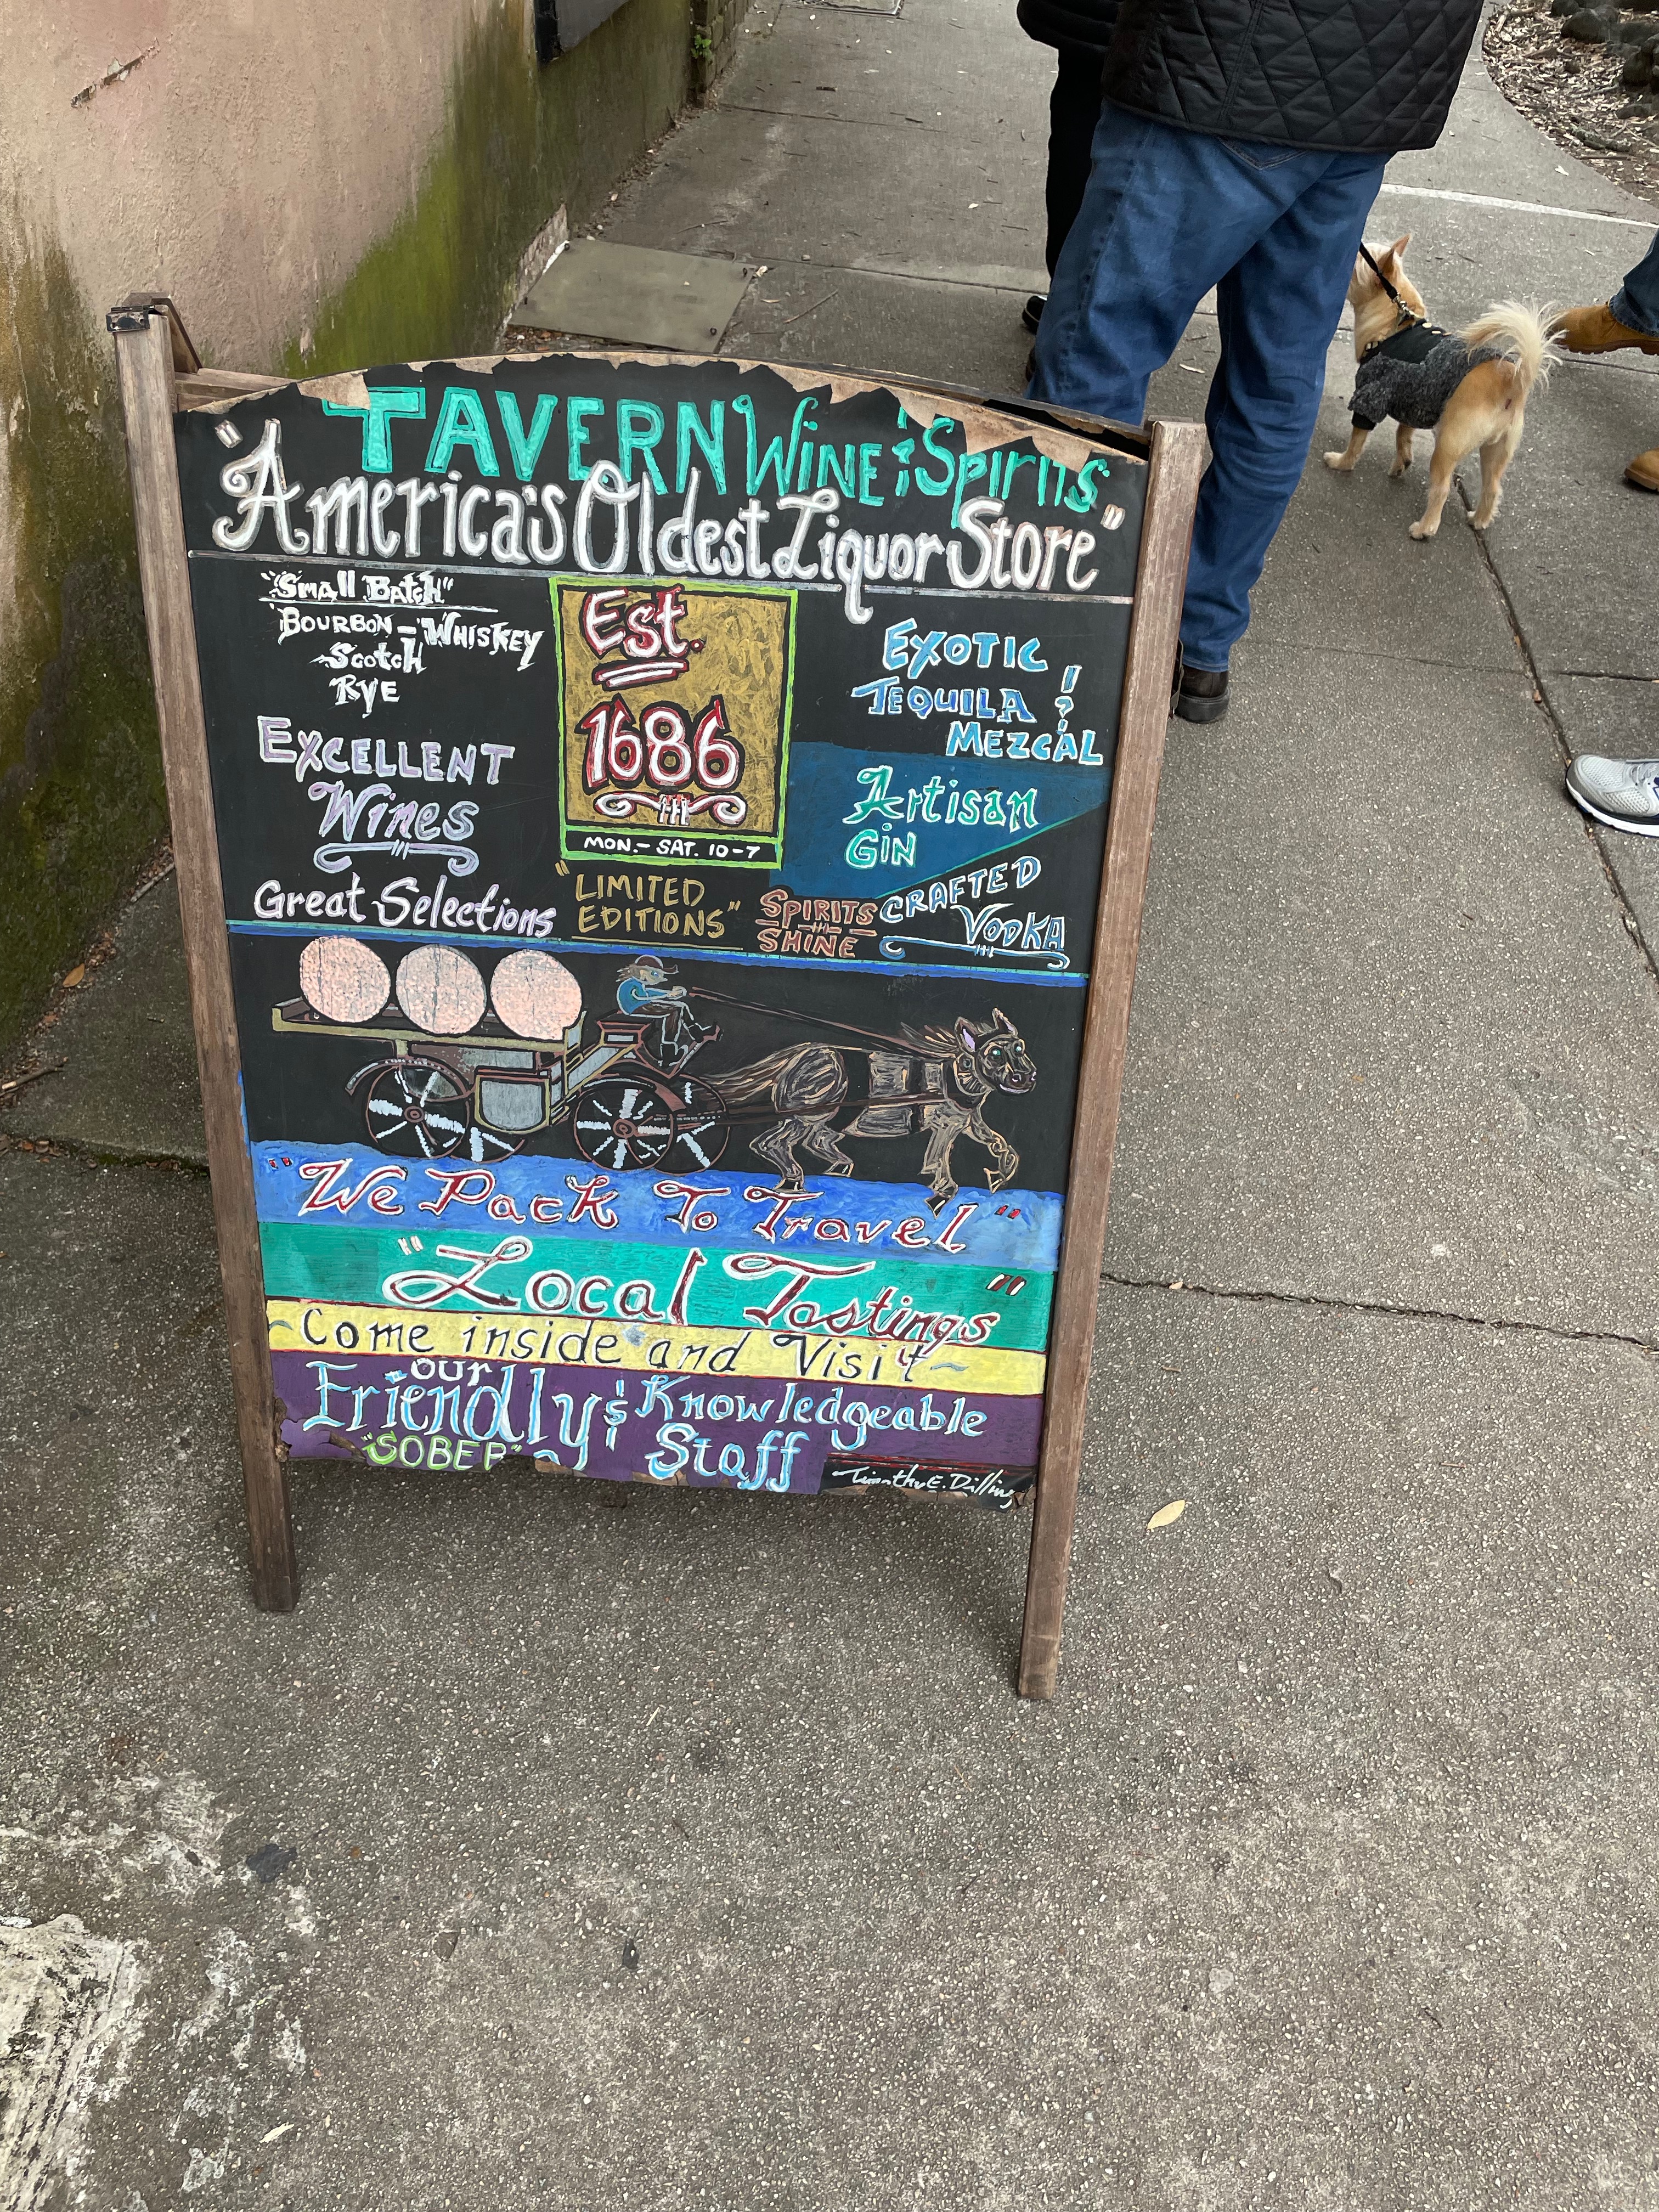 TAVERN WINE & Spirits
"America's Oldest Liquor Store"
"Small Batch"
Bourbon - "Whiskey
Scotch
Rye
Excellent
Wines
Great Selections
Est.
1686
MON. - SAT. 10-7
"LIMITED
EDITIONS"
EXOTIC
TEQUILA &
MEZCAL
Artisan
Gin
SPIRITS
SHINE
CRAFTED
VODKA
"We Pack To Travel"
"Local Tastings"
~Come inside and Visit~
our
Friendly & Knowledgeable
"SOBER" Staff